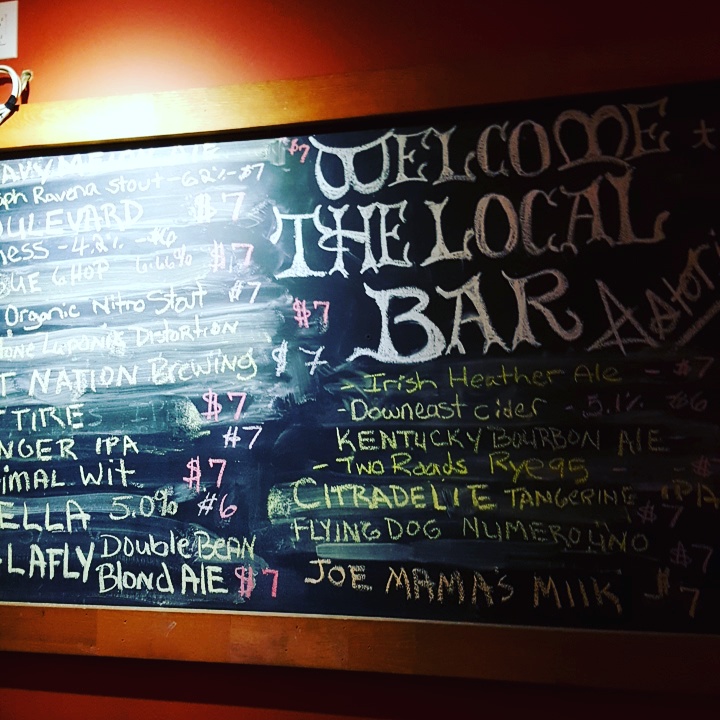 Ravena Stout - 6.2% - $7
OULEVARD $7
ness - 4.2% - $6
UE & HOP 6.66% $7
Organic Nitro Stout $7
Distortion $7
T NATION Brewing $7
TIRE $7
NGER IPA $7
imal Wit $7
ELLA 5.0% $6
LAFLY Double Bean
Blond Ale $7
WELCOME
THE LOCAL
BAR Astori
- Irish Heather Ale - $7
- Downeast cider - 5.1% $6
KENTUCKY BOURBON ALE
- Two Roads Rye 95 -
CITRADELIE TANGERINE IPA
$7
FLYING DOG NUMERO UNO
$7
JOE MAMA'S MIlK $7